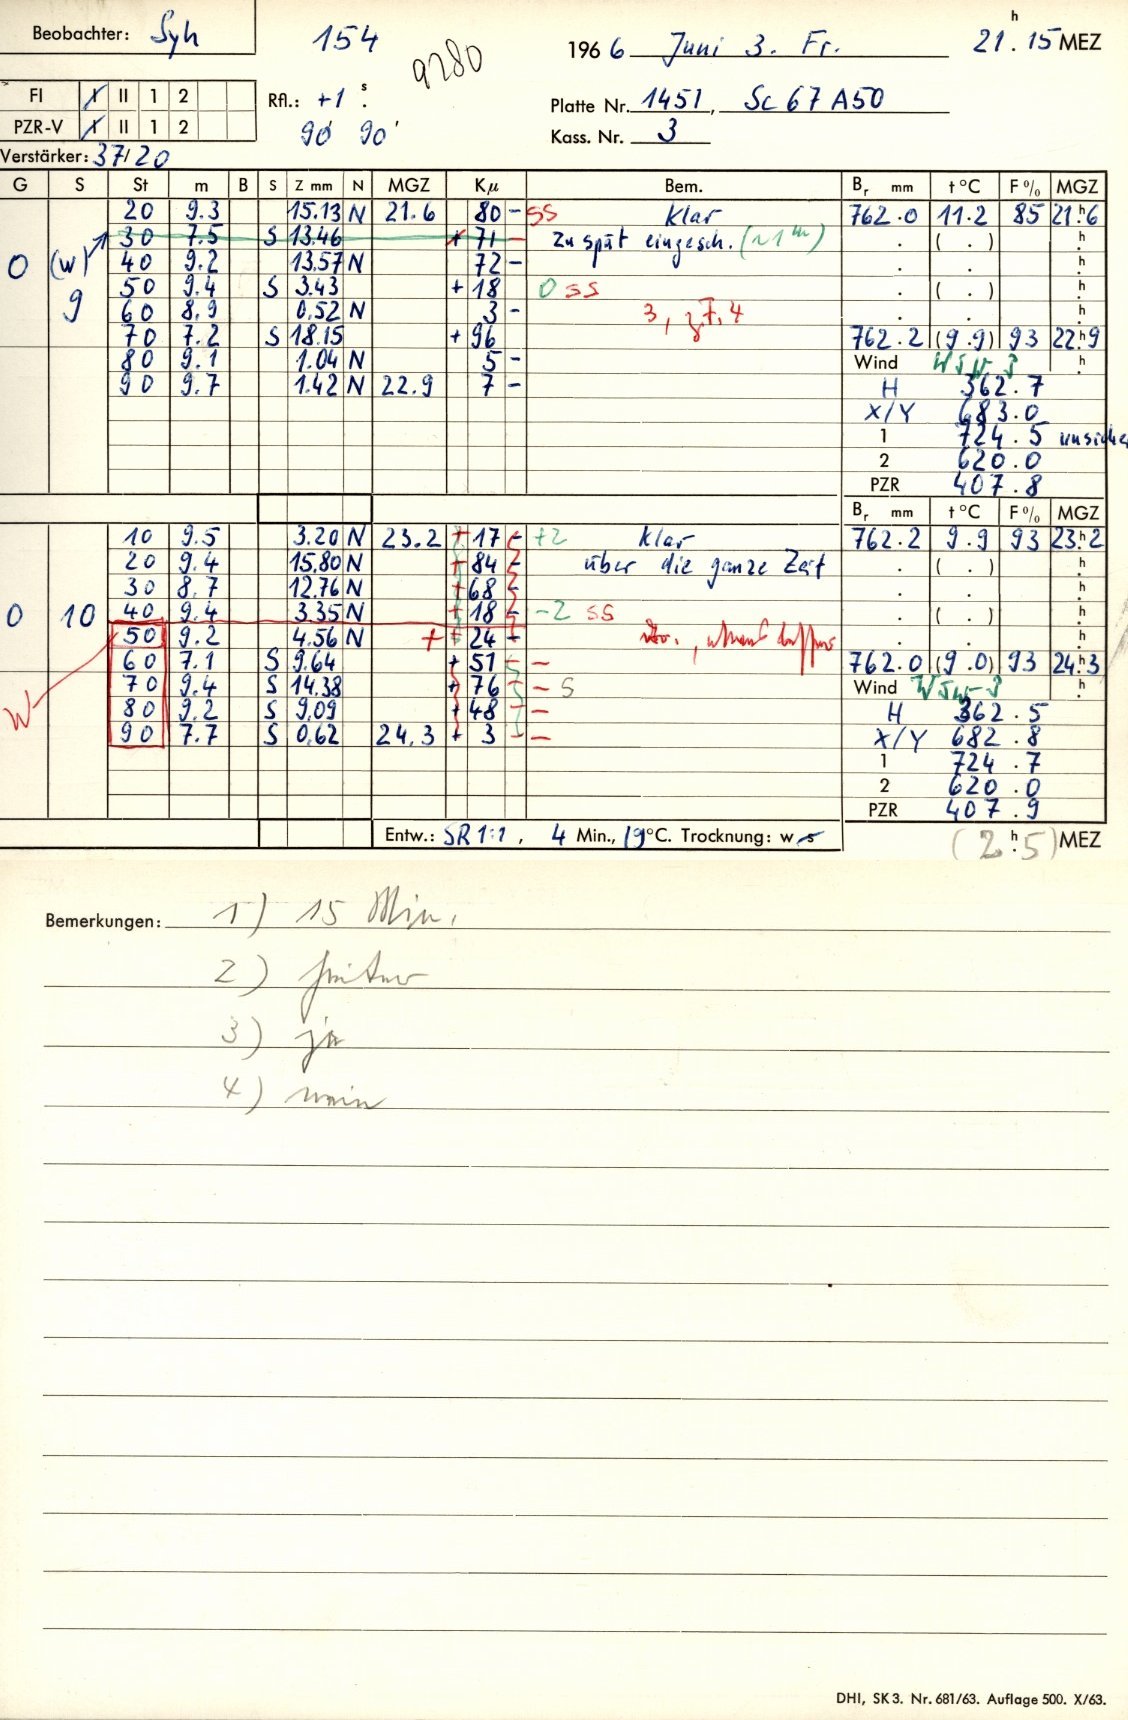 Beobachter: Syh
154
9280
1966 Juni 3. Fr.
21.h 15 MEZ
FI I II 1 2
PZR-V I II 1 2
Rfl.: +1 s
90' 90'
Platte Nr. 1451, Sc 67 A50
Kass. Nr. 3
Verstärker: 37/20
G S St m B S Z mm N MGZ Kμ Bem. Br mm t °C F % MGZ
20 9.3 15.13 N 21.6 80 - ss klar 762.0 11.2 85 21h6
30 7.5 S 13.46 + 71 - zu spät eingesch. (~1m) . ( . ) h
0 (w) 9
40 9.2 13.57 N 72 - . . h
50 9.4 S 3.43 + 18 0 ss . ( . ) h
60 8.9 0.52 N 3 - 3, 7, 4 . . h
70 7.2 S 18.15 + 96 762.2 (9.9) 93 22h9
80 9.1 1.04 N 5 - Wind WSW-3 h
90 9.7 1.42 N 22.9 7 - H 362.7
X/Y 683.0
1 724.5 unsicher
2 620.0
PZR 407.8
Br mm t °C F % MGZ
10 9.5 3.20 N 23.2 + 17 - +2 klar 762.2 9.9 93 23h2
20 9.4 15.80 N + 84 - über die ganze Zeit . ( . ) h
30 8.7 12.76 N + 68 - . . h
0 10 40 9.4 3.35 N + 18 - -2 ss . ( . ) h
50 9.2 4.56 N + 24 - . . h
60 7.1 S 9.64 + 51 - 762.0 (9.0) 93 24h3
70 9.4 S 14.38 + 76 - s Wind WSW-3 h
W 80 9.2 S 9.09 + 48 - H 362.5
90 7.7 S 0.62 24.3 + 3 - X/Y 682.8
1 724.7
2 620.0
PZR 407.9
Entw.: SR 1:1, 4 Min., 19°C. Trocknung: w s
(2h.5) MEZ
Bemerkungen: 1) 15 Min.
2)
3) ja
4) nein
DHI, SK 3. Nr. 681/63. Auflage 500. X/63.